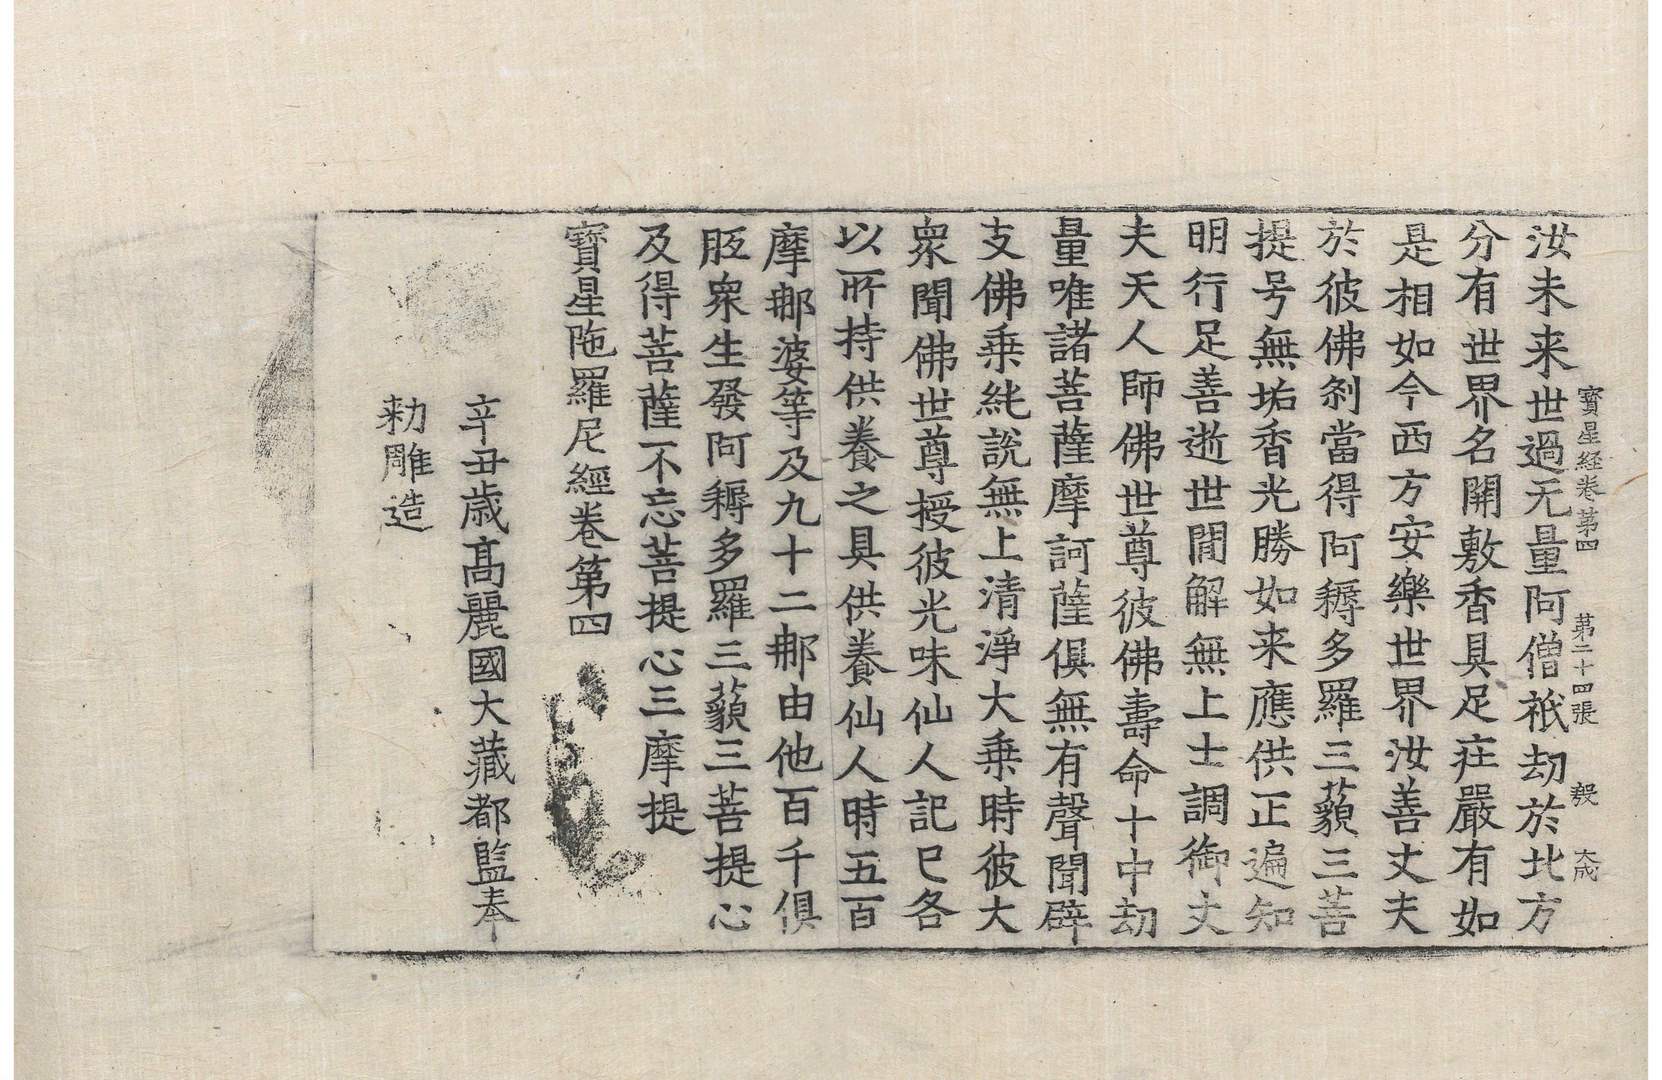 寳星経卷苐四 苐二十四張 毅 大成
汝未来世過无量阿僧祇劫於北方
分有世界名開敷香具足㽵嚴有如
是相如今西方安樂世界汝善丈夫
於彼佛刹當得阿耨多羅三藐三菩
提号無垢香光勝如来應供正遍知
明行足善逝世間解無上士調御丈
夫天人師佛世尊彼佛壽命十中劫
量唯諸菩薩摩訶薩俱無有聲聞辟
支佛乗純說無上清淨大乗時彼大
衆聞佛世尊授彼光味仙人記已各
以所持供養之具供養仙人時五百
摩𨚗婆等及九十二𨚗由他百千俱
胝衆生發阿耨多羅三藐三菩提心
及得菩薩不忘菩提心三摩提
寳星陁羅尼經卷第四
辛丑歳髙麗國大藏都監奉
勑雕造